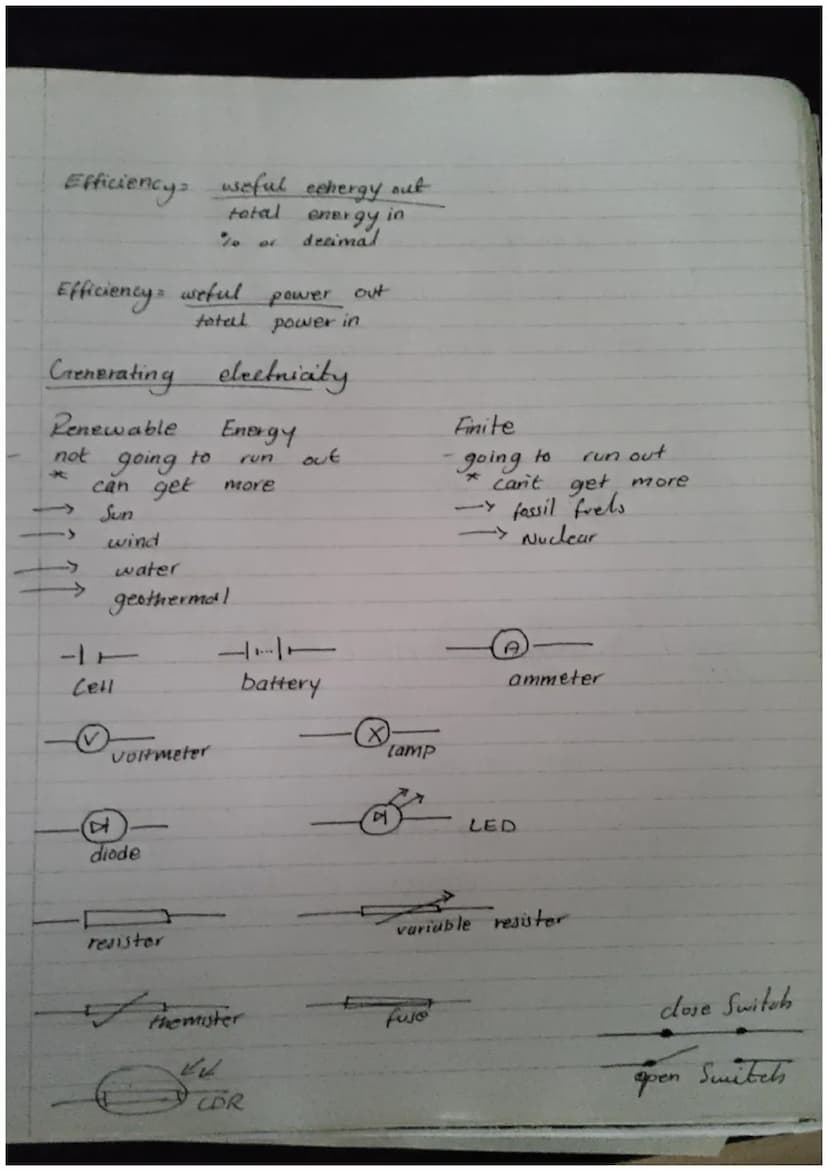 Efficiency= useful eehergy out
total energy in
% or decimal
Efficiency= useful power out
total power in
Generating electricity
Renewable Energy
- not going to run out
* can get more
→ Sun
→ wind
→ water
→ geothermal
Finite
- going to run out
* can't get more
→ fossil fuels
→ Nuclear
Cell battery ammeter
A
V voltmeter X lamp
diode LED
resistor variable resister
themister fuse
close Switch
open Switch
LDR